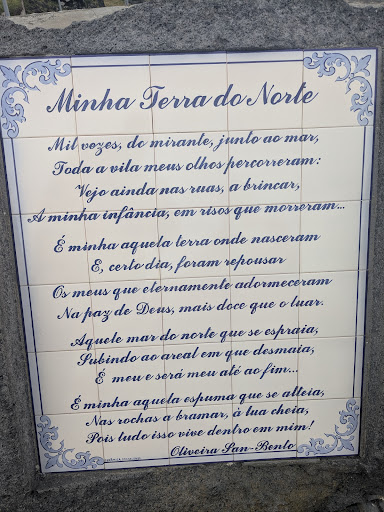 Minha Terra do Norte
Mil vozes, do mirante, junto ao mar,
Toda a vila meus olhos percorreram:
Vejo ainda nas ruas, a brincar,
A minha infância, em risos que morreram...
É minha aquela terra onde nasceram
E, certo dia, foram repousar
Os meus que eternamente adormeceram
Na paz de Deus, mais doce que o luar.
Aquele mar do norte que se espraia,
Subindo ao areal em que desmaia,
É meu e será meu até ao fim...
É minha aquela espuma que se alteia,
Nas rochas a bramar, à lua cheia,
Pois tudo isso vive dentro em mim!
Oliveira San-Bento